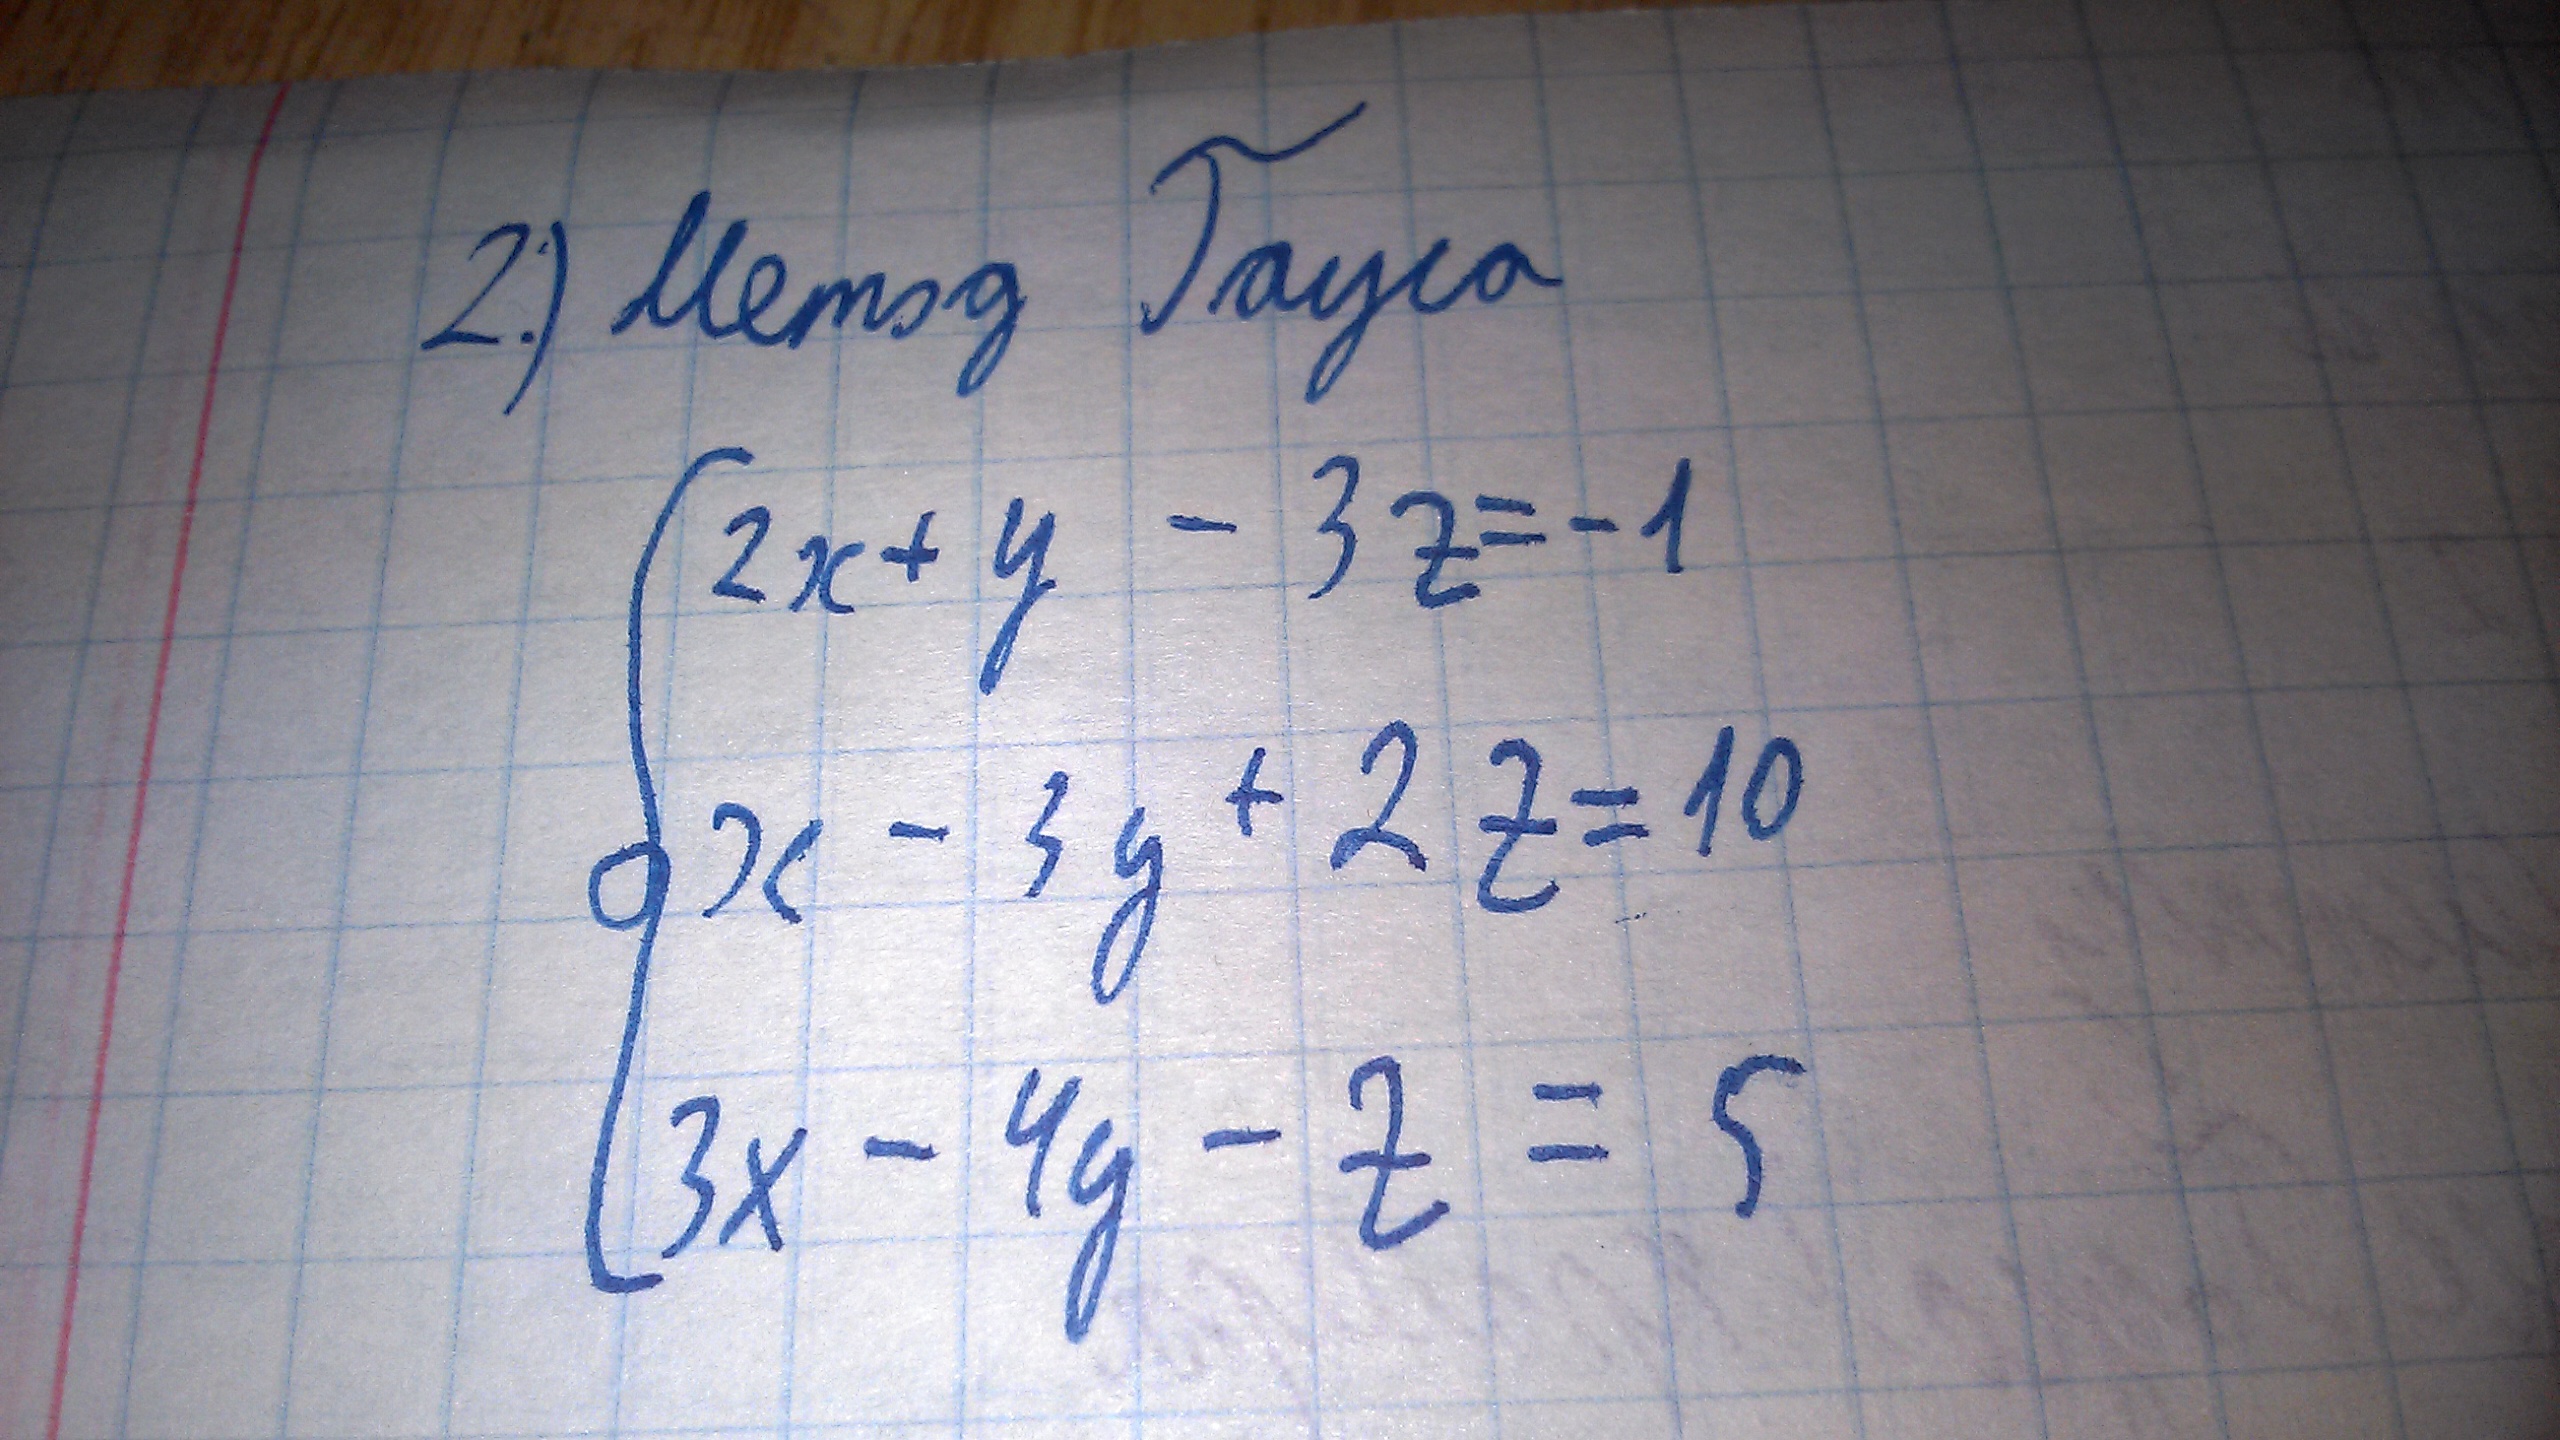 2.) Метод Гауса
2x + y - 3z = -1
x - 3y + 2z = 10
3x - 4y - z = 5